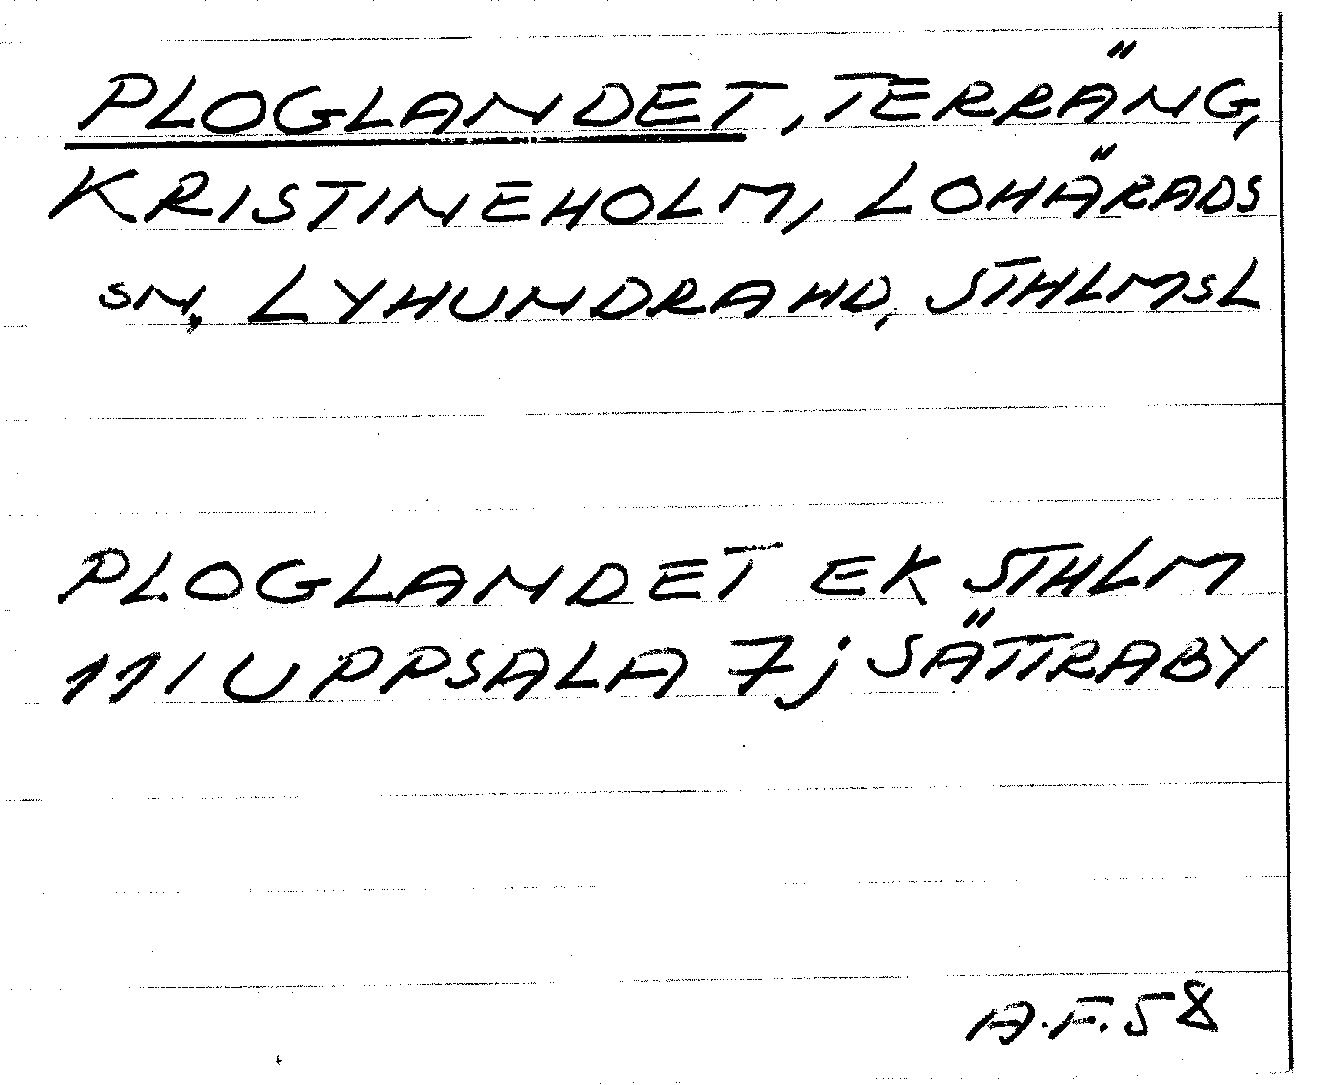 PLOGLANDET, TERRÄNG,
KRISTINEHOLM, LOHÄRADS
SN, LYHUNDRA HD, STHLMSL
PLOGLANDET EK STHLM
111 UPPSALA 7j SÄTTRABY
A.F. 58